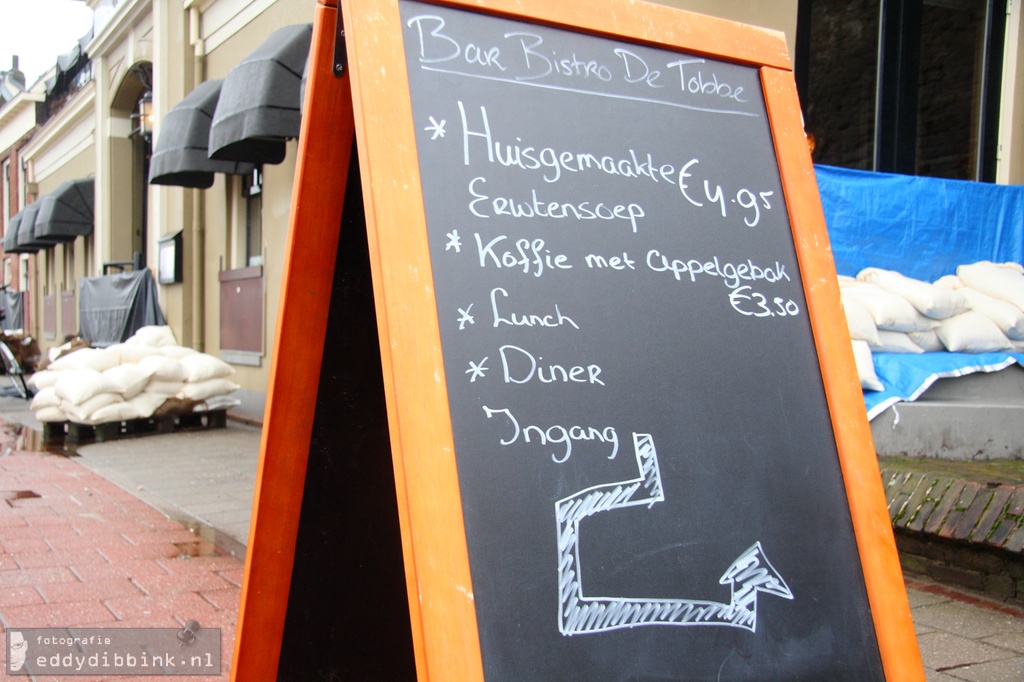 Bar Bistro De Tobbe
* Huisgemaakte €4.95
Erwtensoep
* Koffie met Appelgebak
€3,50
* Lunch
* Diner
Ingang
fotografie
eddydibbink.nl